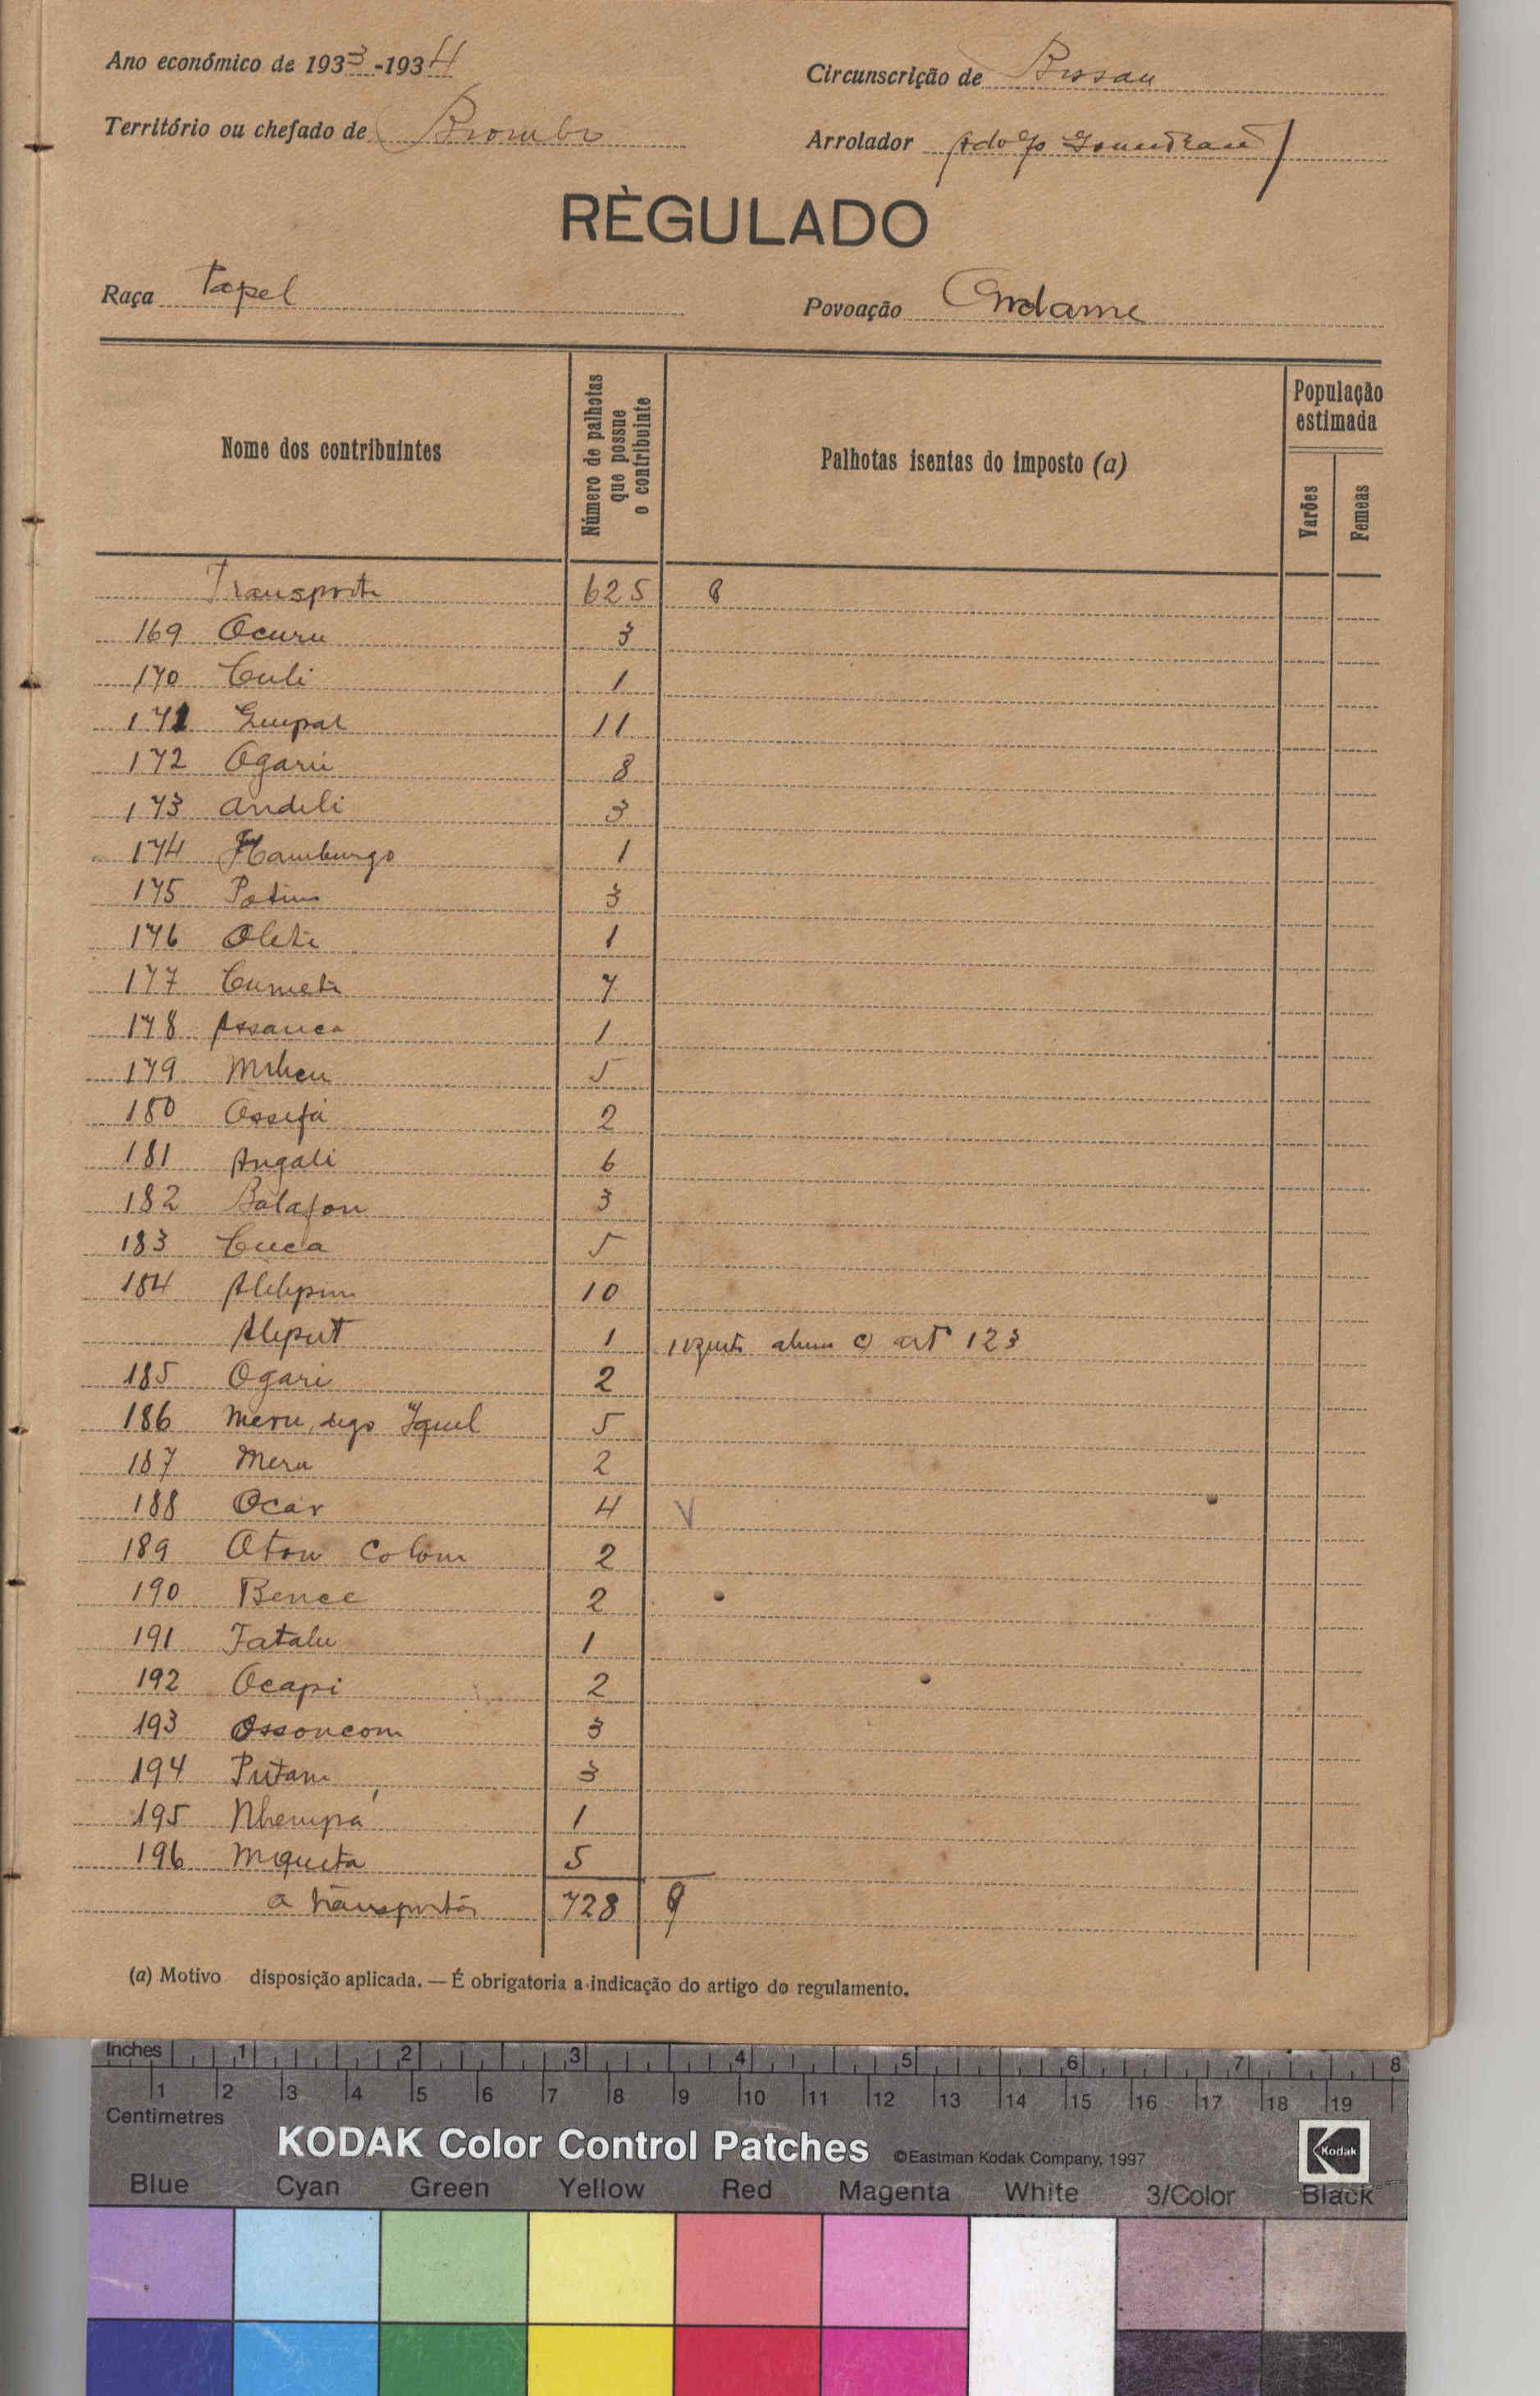 Ano económico de 1933-1934
Circunscrição de Bissau
Território ou chefado de Biombo
Arrolador Adolfo
RÈGULADO
Raça Papel
Povoação Ondame
Nome dos contribuintes
Número de palhotas que possue o contribuinte
Palhotas isentas do imposto (a)
População estimada
Varões
Femeas
Transporte 625 8
169 Ocuru 3
170 Culi 1
171 Guipar 11
172 Ogari 8
173 Andili 3
174 Hamburgo 1
175 3
176 Olete 1
177 Cumete 7
178 Assanca 1
179 5
180 Ossefá 2
181 Angali 6
182 Balafon 3
183 Cuca 5
184 10
Aliput 1 art 123
185 Ogari 2
186 Meru, digo 5
187 Meru 2
188 Ocar 4 V
189 Colom 2
190 Bence 2
191 Tatalu 1
192 Ocapi 2
193 Ossoncom 3
194 Putam 3
195 Nhempá 1
196 Miquita 5
a transportar 728 9
(a) Motivo disposição aplicada. — É obrigatoria a indicação do artigo do regulamento.
Inches 1 2 3 4 5 6 7 8
1 2 3 4 5 6 7 8 9 10 11 12 13 14 15 16 17 18 19
Centimetres
KODAK Color Control Patches ©Eastman Kodak Company, 1997 Kodak
Blue Cyan Green Yellow Red Magenta White 3/Color Black